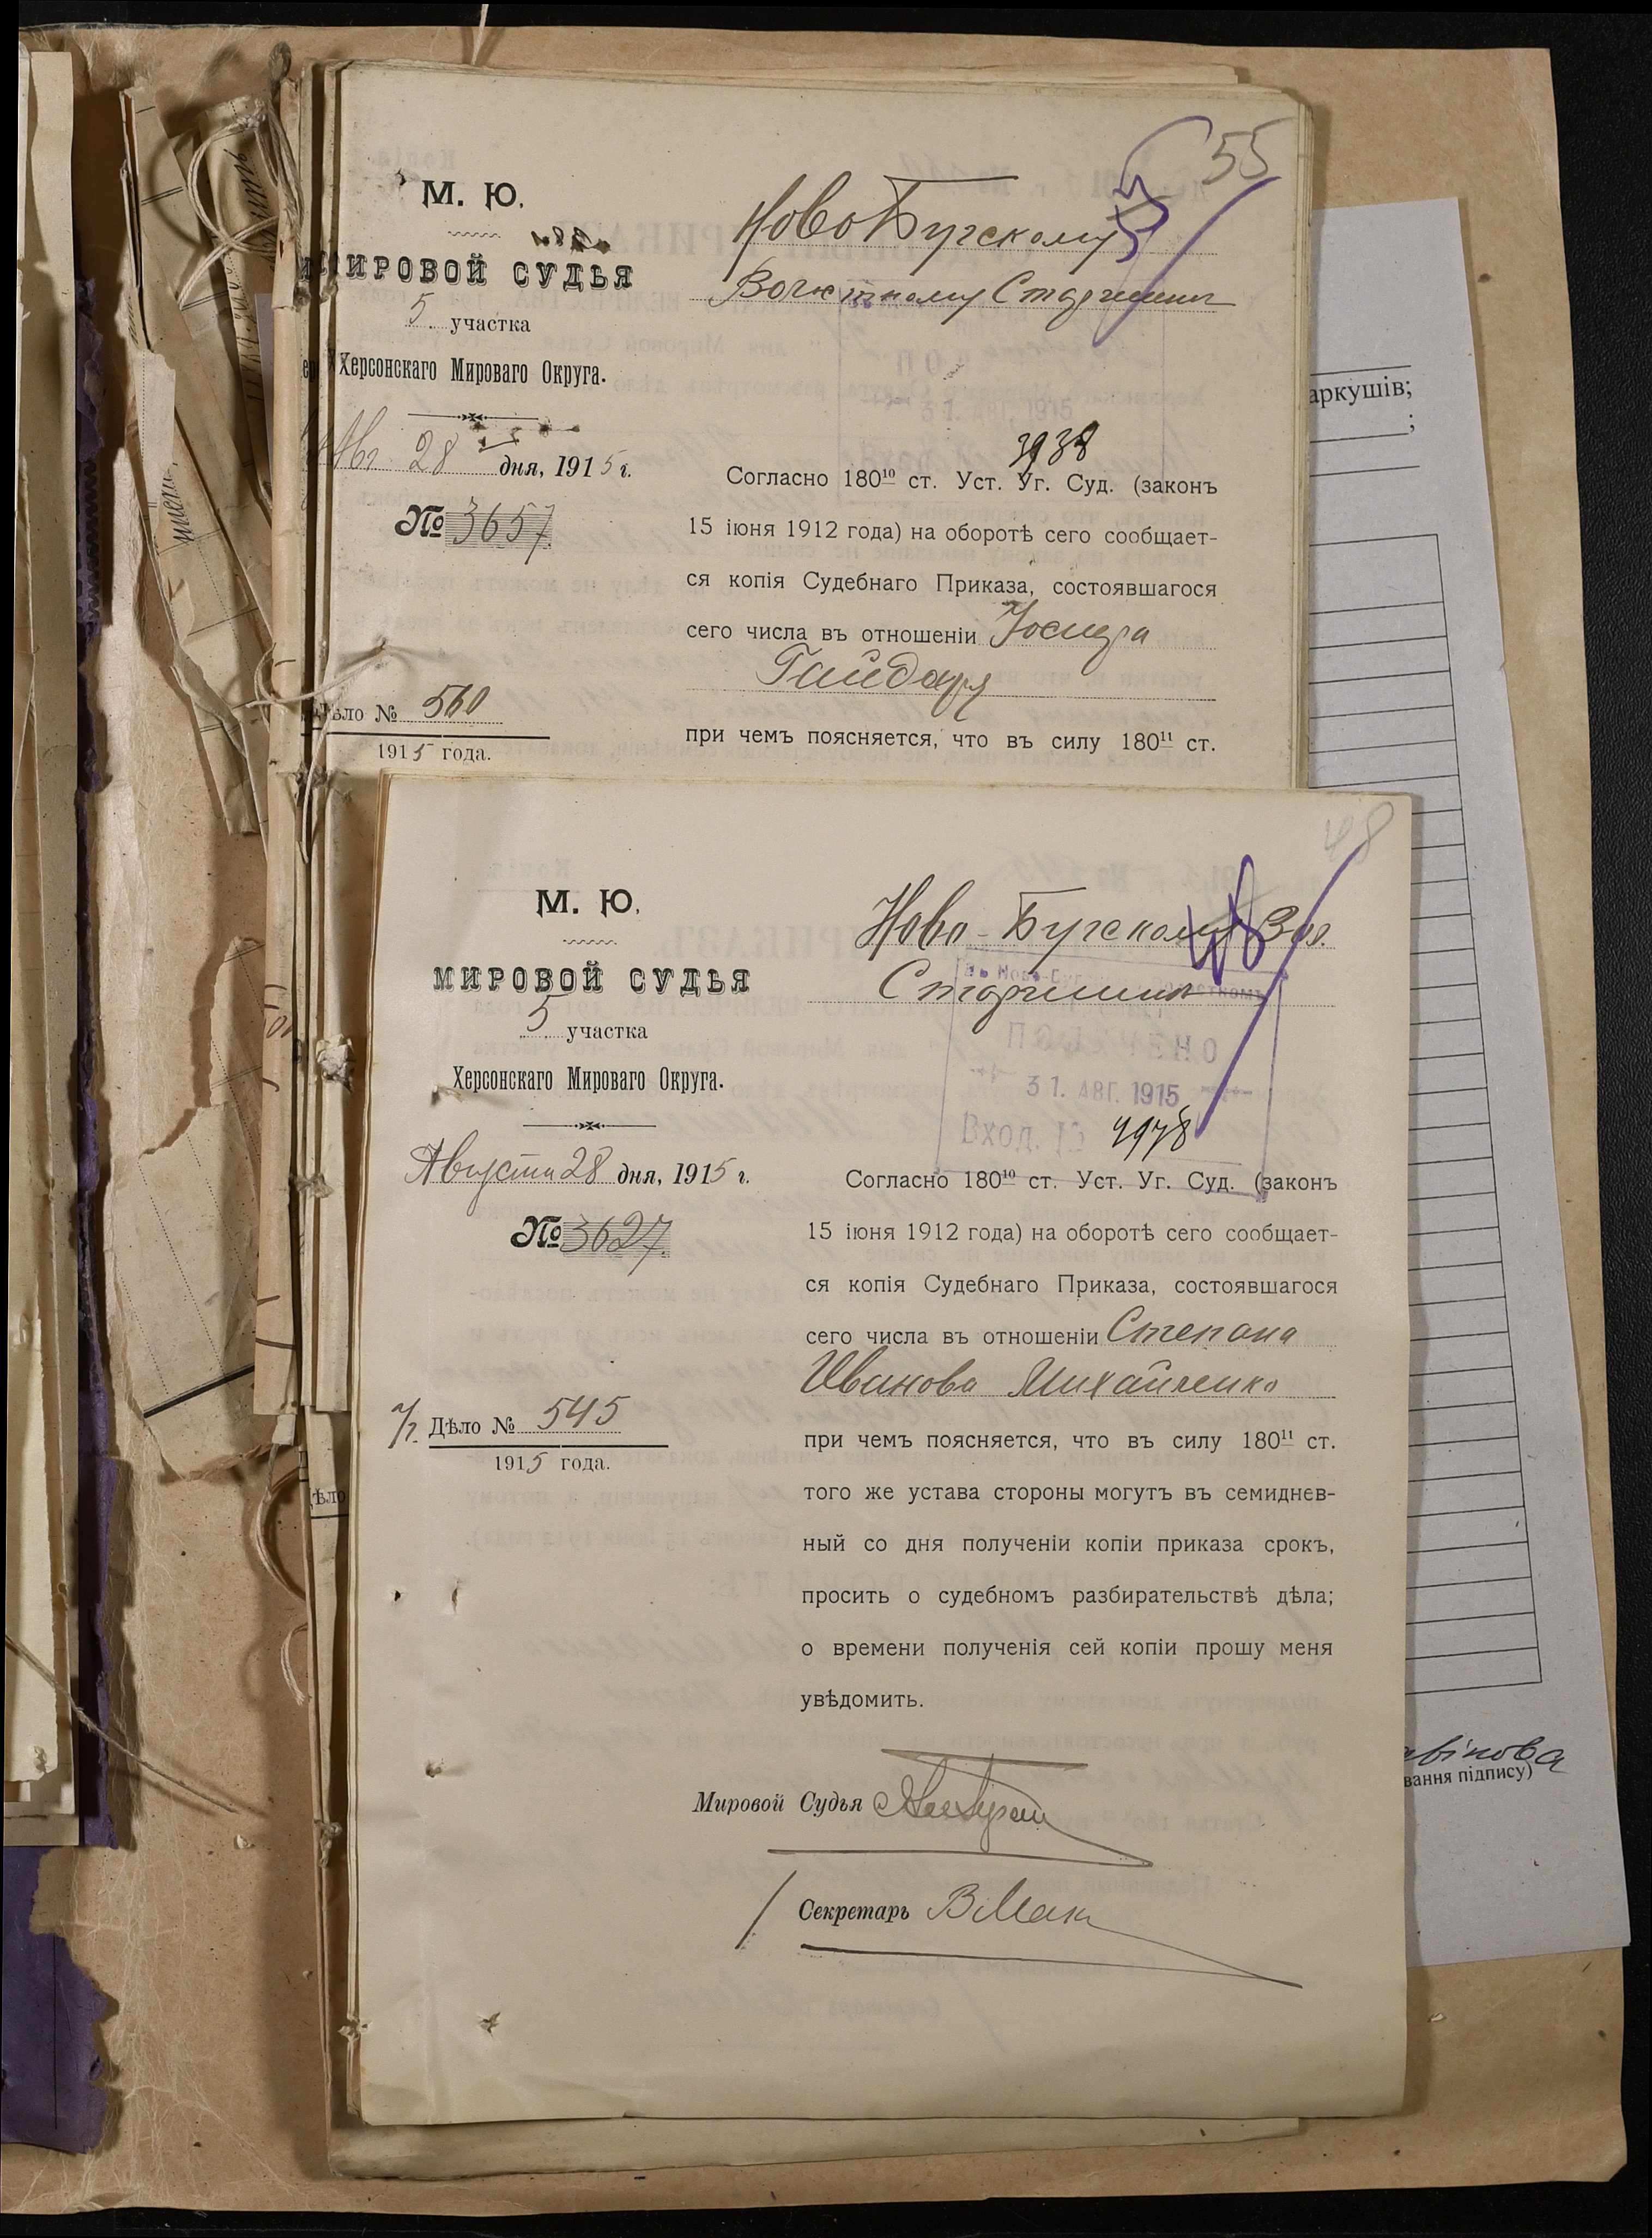 55
М. Ю.
МИРОВОЙ СУДЬЯ
5 участка
Херсонскаго Мироваго Округа.
Авг 28 дня, 1915 г.
№ 3657
Дѣло № 560
1915 года.
НовоБугскому
Волостному Старшинѣ
31. АВГ. 1915
3938
Согласно 180¹⁰ ст. Уст. Уг. Суд. (законъ
15 іюня 1912 года) на оборотѣ сего сообщает-
ся копія Судебнаго Приказа, состоявшагося
сего числа въ отношеніи Іосифа
Гайдаря
при чемъ поясняется, что въ силу 180¹¹ ст.
48
М. Ю.
МИРОВОЙ СУДЬЯ
5 участка
Херсонскаго Мироваго Округа.
Августа 28 дня, 1915 г.
№ 3627
Дѣло № 545
1915 года.
Ново-Бугскому Вол.
48
Старшинѣ
ПОЛУЧЕНО
31. АВГ. 1915
Вход. №
Согласно 180¹⁰ ст. Уст. Уг. Суд. (законъ
15 іюня 1912 года) на оборотѣ сего сообщает-
ся копія Судебнаго Приказа, состоявшагося
сего числа въ отношеніи Степана
Иванова Михайленко
при чемъ поясняется, что въ силу 180¹¹ ст.
того же устава стороны могутъ въ семиднев-
ный со дня полученіи копіи приказа срокъ,
просить о судебномъ разбирательствѣ дѣла;
о времени полученія сей копіи прошу меня
увѣдомить.
Мировой Судья
Секретарь
аркушів;
;
вання підпису)
дѣло